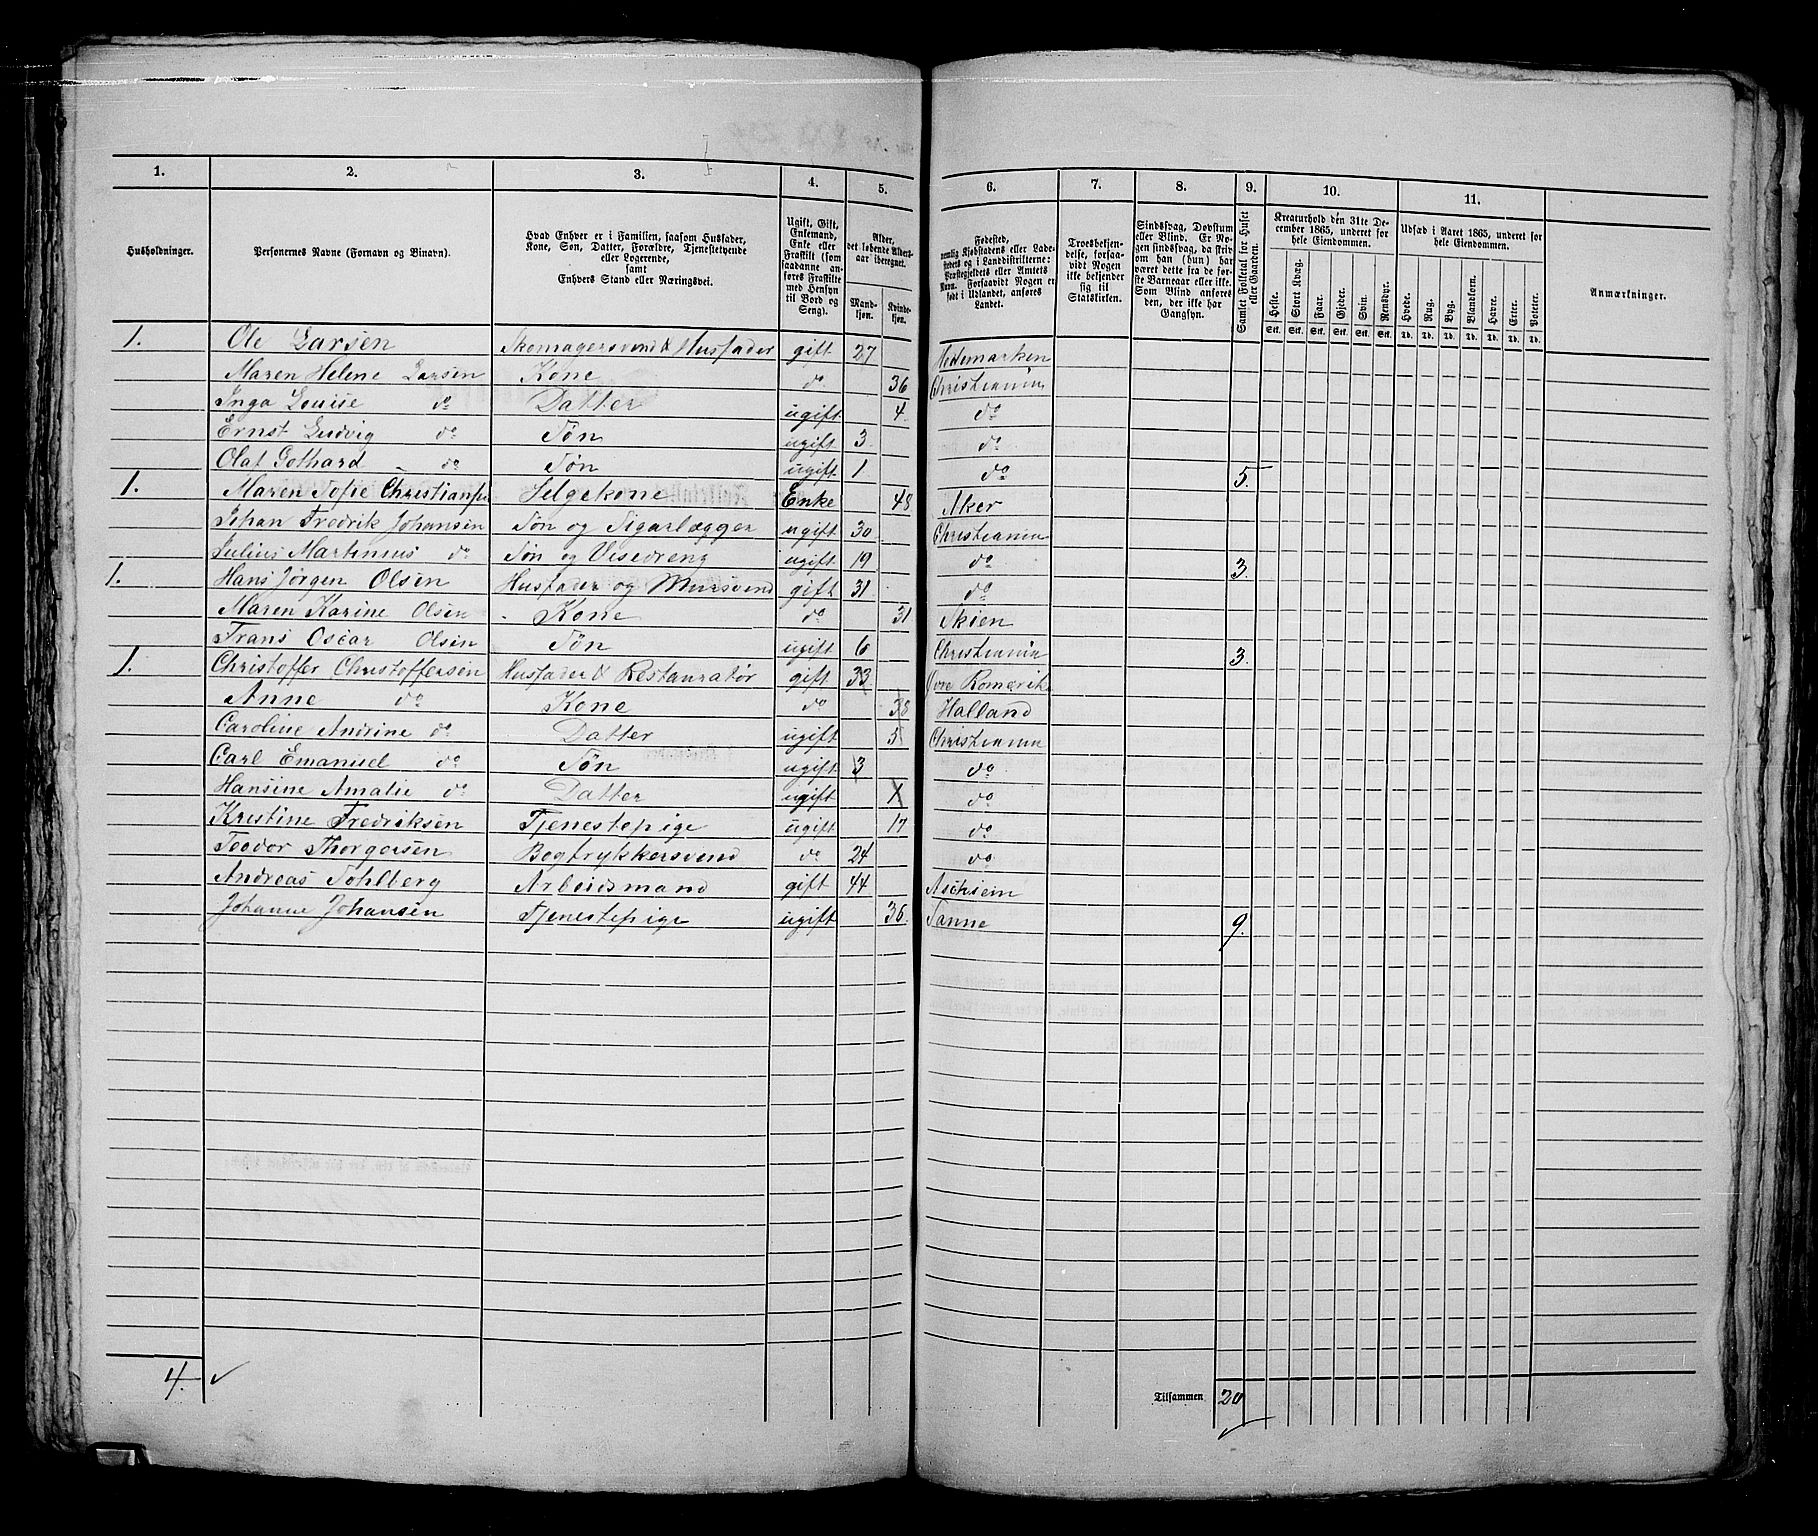 1. 2. 3. 4. 5. 6. 7. 8. 9. 10. 11.
Husholdninger. Personernes Navne (Fornavn og Binavn). Hvad Enhver er i Familien, saasom Husfader, Kone, Søn, Datter, Forældre, Tjenestetyende eller Logerende, samt Enhvers Stand eller Næringsvei. Ugift, Gift, Enkemand, Enke eller Fraskilt (som saadanne anføres Fraskilte med Hensyn til Bord og Seng). Alder, det løbende Alders-aar iberegnet. Mand-kjøn. Kvinde-kjøn. Fødested, nemlig Kjøbstadens eller Ladestedets og i Landdistrikterne: Præstegjeldets eller Amtets Navn. Forsaavidt Nogen er født i Udlandet, anføres Landet. Troesbekjendelse, forsaavidt Nogen ikke bekjender sig til Statskirken. Sindssvag, Døvstum eller Blind. Er Nogen sindssvag, da skrives om han (hun) har været dette fra de første Barneaar eller ikke. Som Blind anføres den, der ikke har Gangsyn. Samlet Folketal for Huset eller Gaarden. Kreaturhold den 31te December 1865, underet for hele Eiendommen. Heste. Stort Kvæg. Faar. Gjeder. Svin. Rensdyr. Udsæd i Aaret 1865, underet for hele Eiendommen. Hvede. Rug. Byg. Blandkorn. Havre. Erter. Poteter. Anmærkninger.
Stk. Stk. Stk. Stk. Stk. Stk. Td. Td. Td. Td. Td. Td. Td.
1. Ole Larsen Skomagersvend & Husfader gift 27 Hedemarken
Maren Helene Larsen Kone do 36 Christiania
Inga Louise do Datter ugift 4 do
Ernst Ludvig do Søn ugift 3 do
Olaf Gothard do Søn ugift 1 do 5.
1. Maren Sofie Christians Selgekone Enke 48 Aker
Johan Fredrik Johansen Søn og Sigarlægger ugift 30 Christiania
Julius Martinius do Søn og Visedreng ugift 19 do 3.
1. Hans Jørgen Olsen Husfader og Mursvend gift 31 do
Maren Karine Olsen Kone do 31 Skien
Frans Oscar Olsen Søn ugift 6 Christiania 3.
1. Christoffer Christoffersen Husfader & Restauratør gift 33 Øvre Romerike
Anne do Kone do 38 Halland
Caroline Andrine do Datter ugift 5 Christiania
Carl Emanuel do Søn ugift 3 do
Hansine Amalie do Datter ugift 1 do
Kristine Fredriksen Tjenestepige ugift 17 do
Teodor Thorgersen Bogtrykkersvend do 24 do
Andreas Sohlberg Arbeidsmand gift 44 Aschiem
Johanne Johansen Tjenestepige ugift 36 Sanne 9.
4. Tilsammen 20